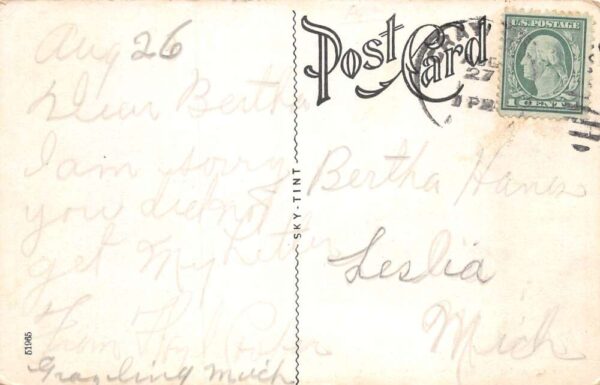 Aug 26
Dear Bertha
I am sorry
you did not
get My Letter
From
Grayling Mich
51965
SKY-TINT
Post Card
27
U.S. POSTAGE
1 CENT 1
Bertha Hanes
Leslia
Mich